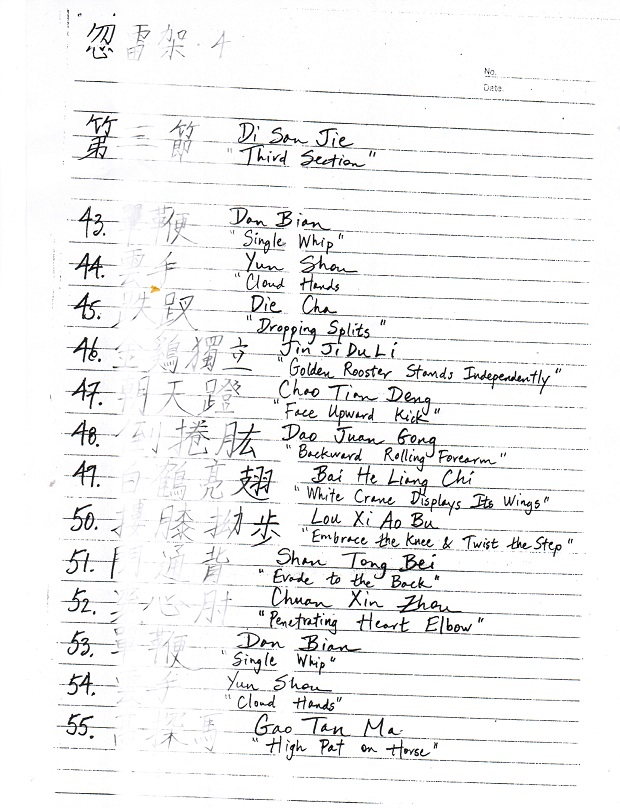 忽雷架·4
No.
Date
第三節 Di San Jie
"Third Section"
43. 單鞭 Dan Bian
"Single Whip"
44. 雲手 Yun Shou
"Cloud Hands
45. 跌 Die Cha
"Dropping Splits"
46. 金鷄獨立 Jin Ji Du Li
"Golden Rooster Stands Independently"
47. 朝天蹬 Chao Tian Deng
"Face Upward Kick"
48. 倒捲肱 Dao Juan Gong
"Backward Rolling Forearm"
49. 白鶴亮翅 Bai He Liang Chi
"White Crane Displays Its Wings"
50. 摟膝拗步 Lou Xi Ao Bu
"Embrace the Knee & Twist the Step"
51. 通背 Shan Tong Bei
"Evade to the Back"
52. 心肘 Chuan Xin Zhou
"Penetrating Heart Elbow"
53. 單鞭 Dan Bian
"Single Whip"
54. 手 Yun Shou
"Cloud Hands"
55. 高探馬 Gao Tan Ma
"High Pat on Horse"